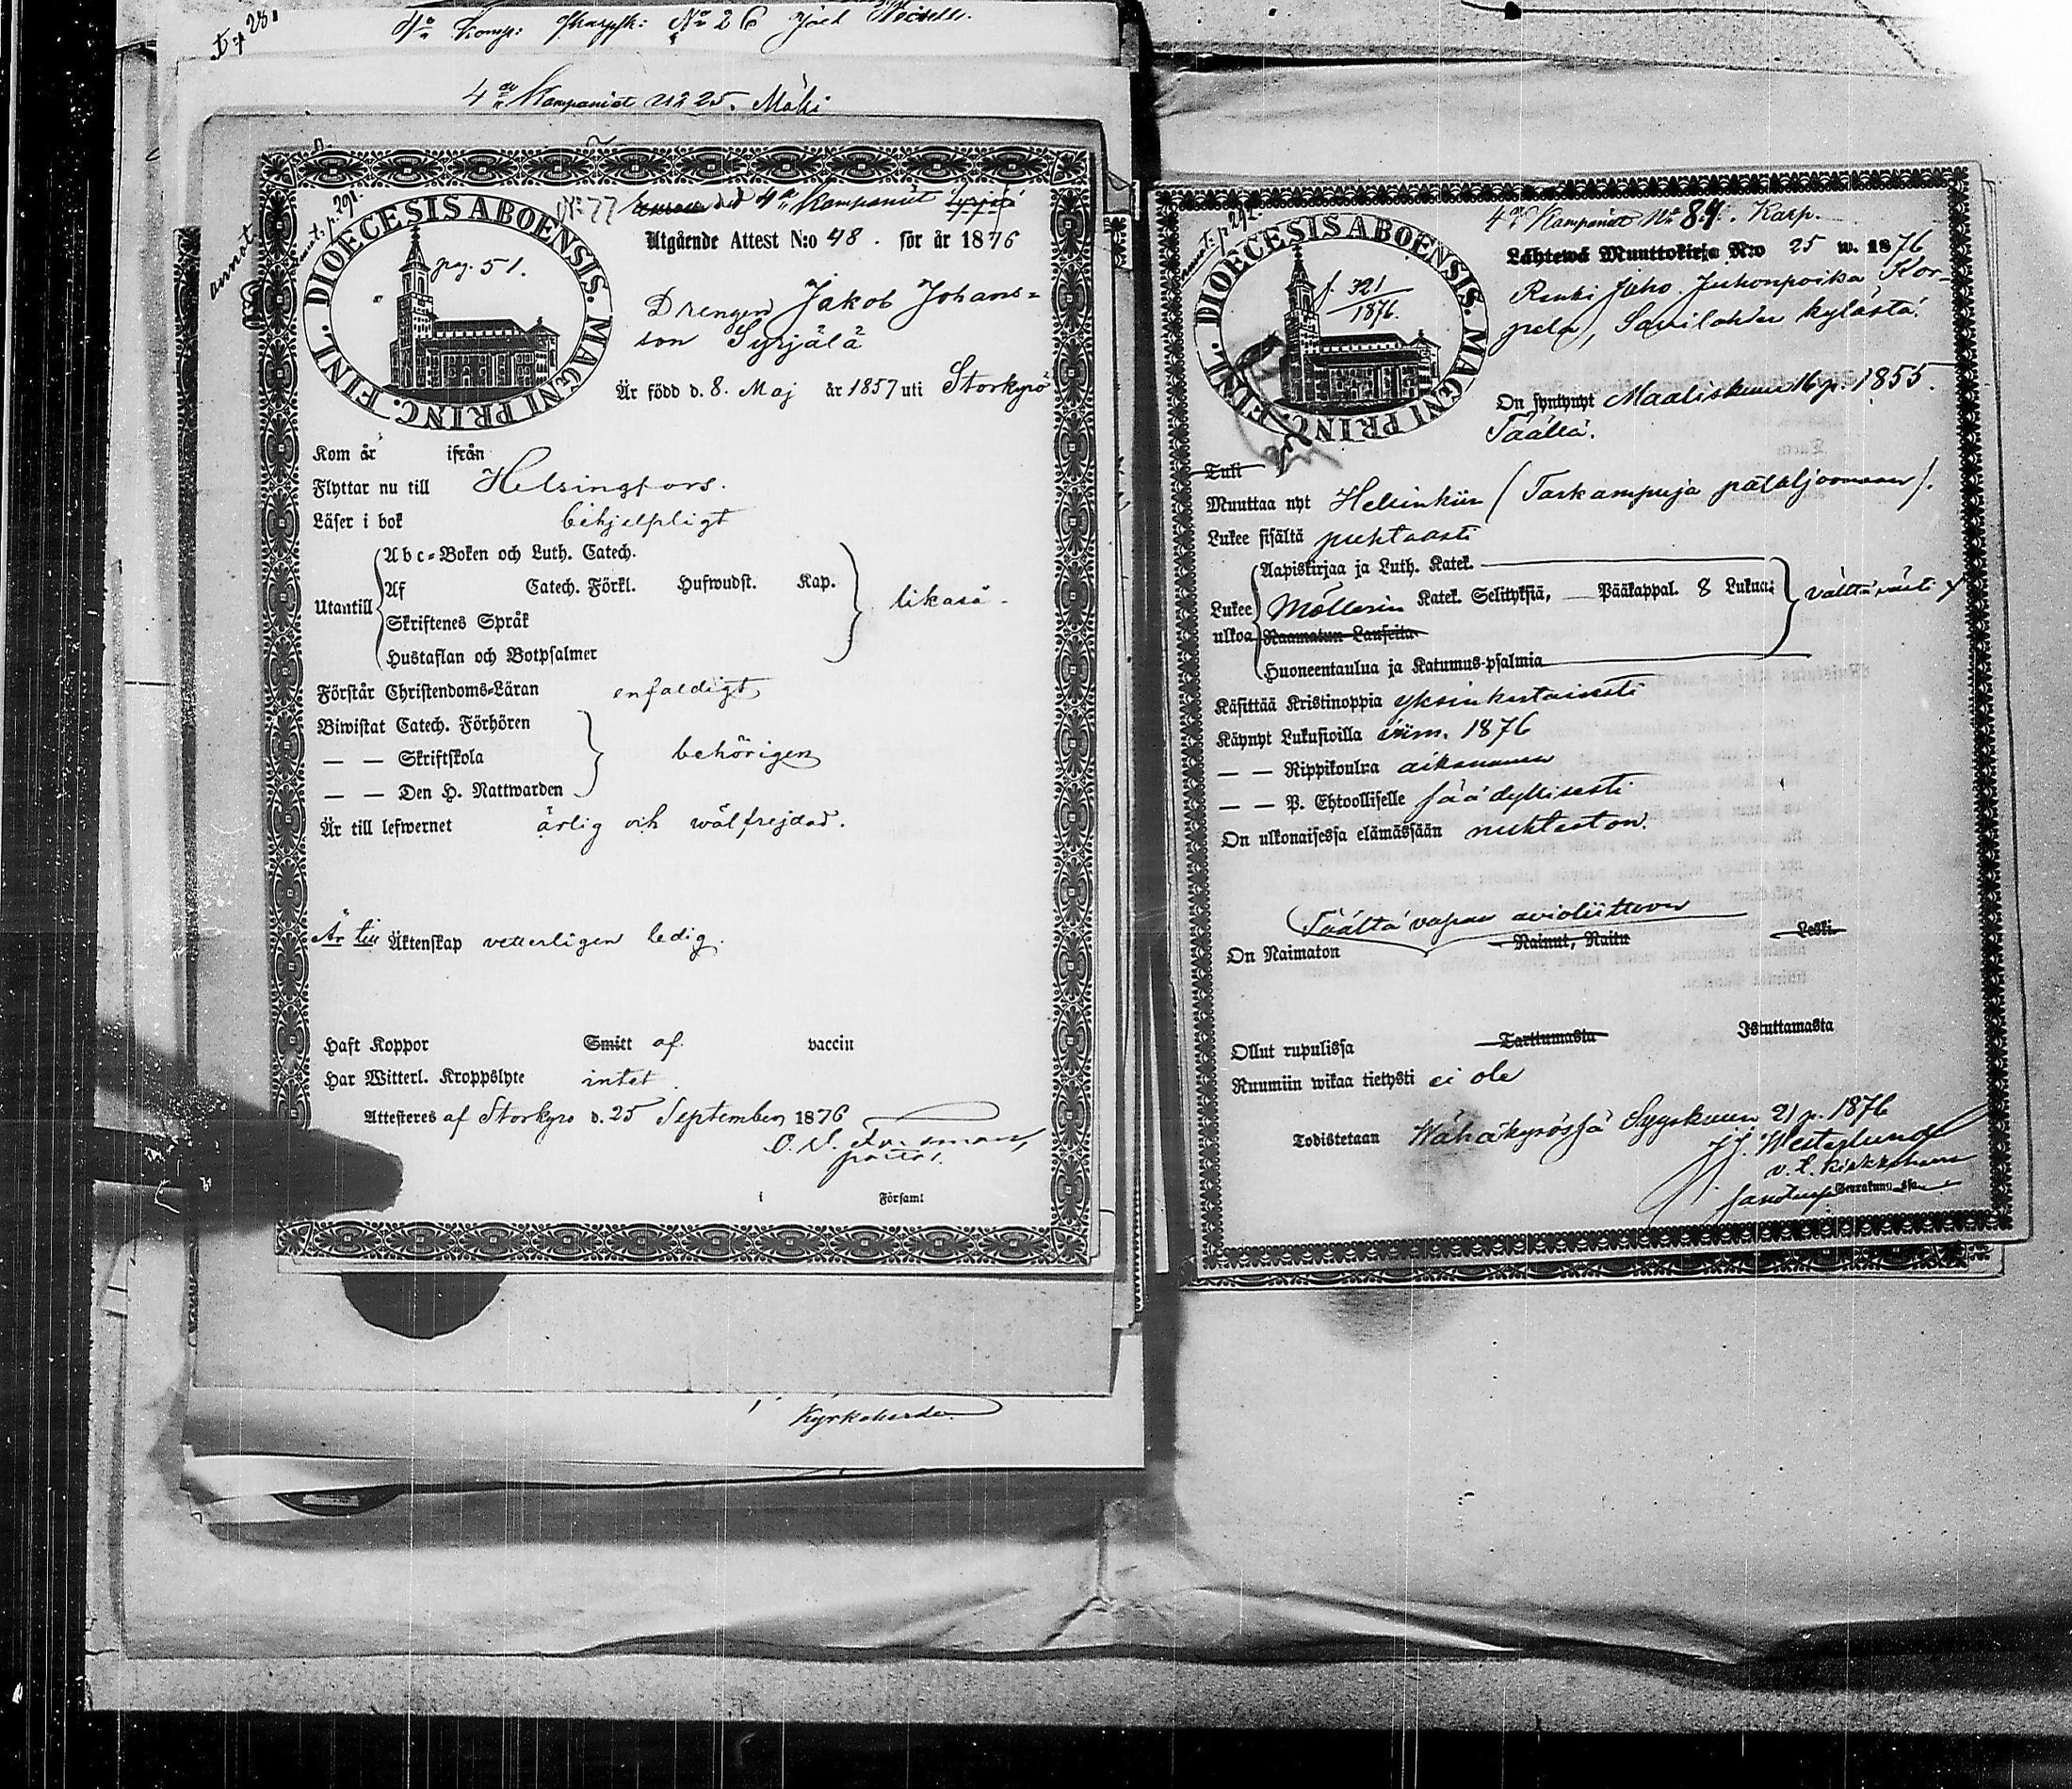 4de Kompaniet No 25. Mäki
annot. p. 291.
No 77
4de Kompaniet
DIOECESIS ABOENSIS. MAGNI PRINC. FINL.
pag. 51.
Utgående Attest N:o 48. för år 1876
Drengen Jakob Johans=
son Syrjälä
Är född d. 8. Maj år 1857 uti Storkyrö
Kom år ifrån
Flyttar nu till Helsingfors.
Läser i bok behjelpligt
Utantill
Abc=Boken och Luth. Catech.
Af Catech. Förkl. Hufwudst. Kap.
Skriftenes Språk
Hustaflan och Botpsalmer
likaså.
Förstår Christendoms=Läran enfaldigt
Biwistat Catech. Förhören
— — Skriftskola behörigen
— — Den H. Nattwarden
Är till lefwernet ärlig och wälfrejdad.
Är till Äktenskap vetterligen ledig.
Haft Koppor Smitt af vaccin
Har Witterl. Kroppslyte intet.
Attesteres af Storkyro d. 25 September 1876
pastor.
i Församl
Kyrkoherde
4de Kompaniet No 84. Karp.
annot. p. 292.
DIOECESIS ABOENSIS. MAGNI PRINC. FINL.
f. 321
1876.
Lähtewä Muuttokirja N:o 25 w. 1876
Renki Juho Juhonpoika Kor-
pela, Savilahden kylästä.
On syntynyt Maaliskuun 16 p. 1855.
Täällä.
Tuli
Muuttaa nyt Helsinkiin (Tarkampuja pataljoonaan).
Lukee sisältä puhtaasti
Lukee
ulkoa
Aapiskirjaa ja Luth. Katek.
Möllerin Katek. Selityksiä, — Pääkappal. 8 Lukua:
Raamatun Lauseita
Huoneentaulua ja Katumus-psalmia
välttävästi
Käsittää Kristinoppia yksinkertaisesti
Käynyt Lukusioilla viim. 1876
— — Rippikoulua aikanansa
— — P. Ehtoolliselle säädyllisesti
On ulkonaisessa elämässään nuhteeton.
Täältä vapaa avioliittoon
On Naimaton Nainut, Naitu Leski
Ollut rupulissa Tarttumasta Istuttamasta
Ruumiin wikaa tietysti ei ole
Todistetaan Wähäkyrössä Syyskuun 21 p. 1876
J. J. Westerlund
Seurakunnassa